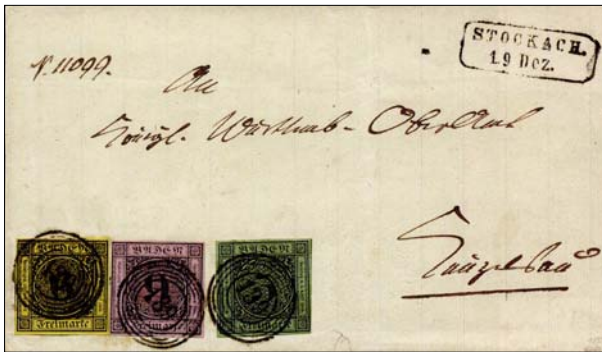 STOCKACH.
19 Dez.
N. 11099.
An
Königl. Württemb- OberAmt
Künzelsau
BADEN BADEN BADEN
9
Freimarke Freimarke Freimarke